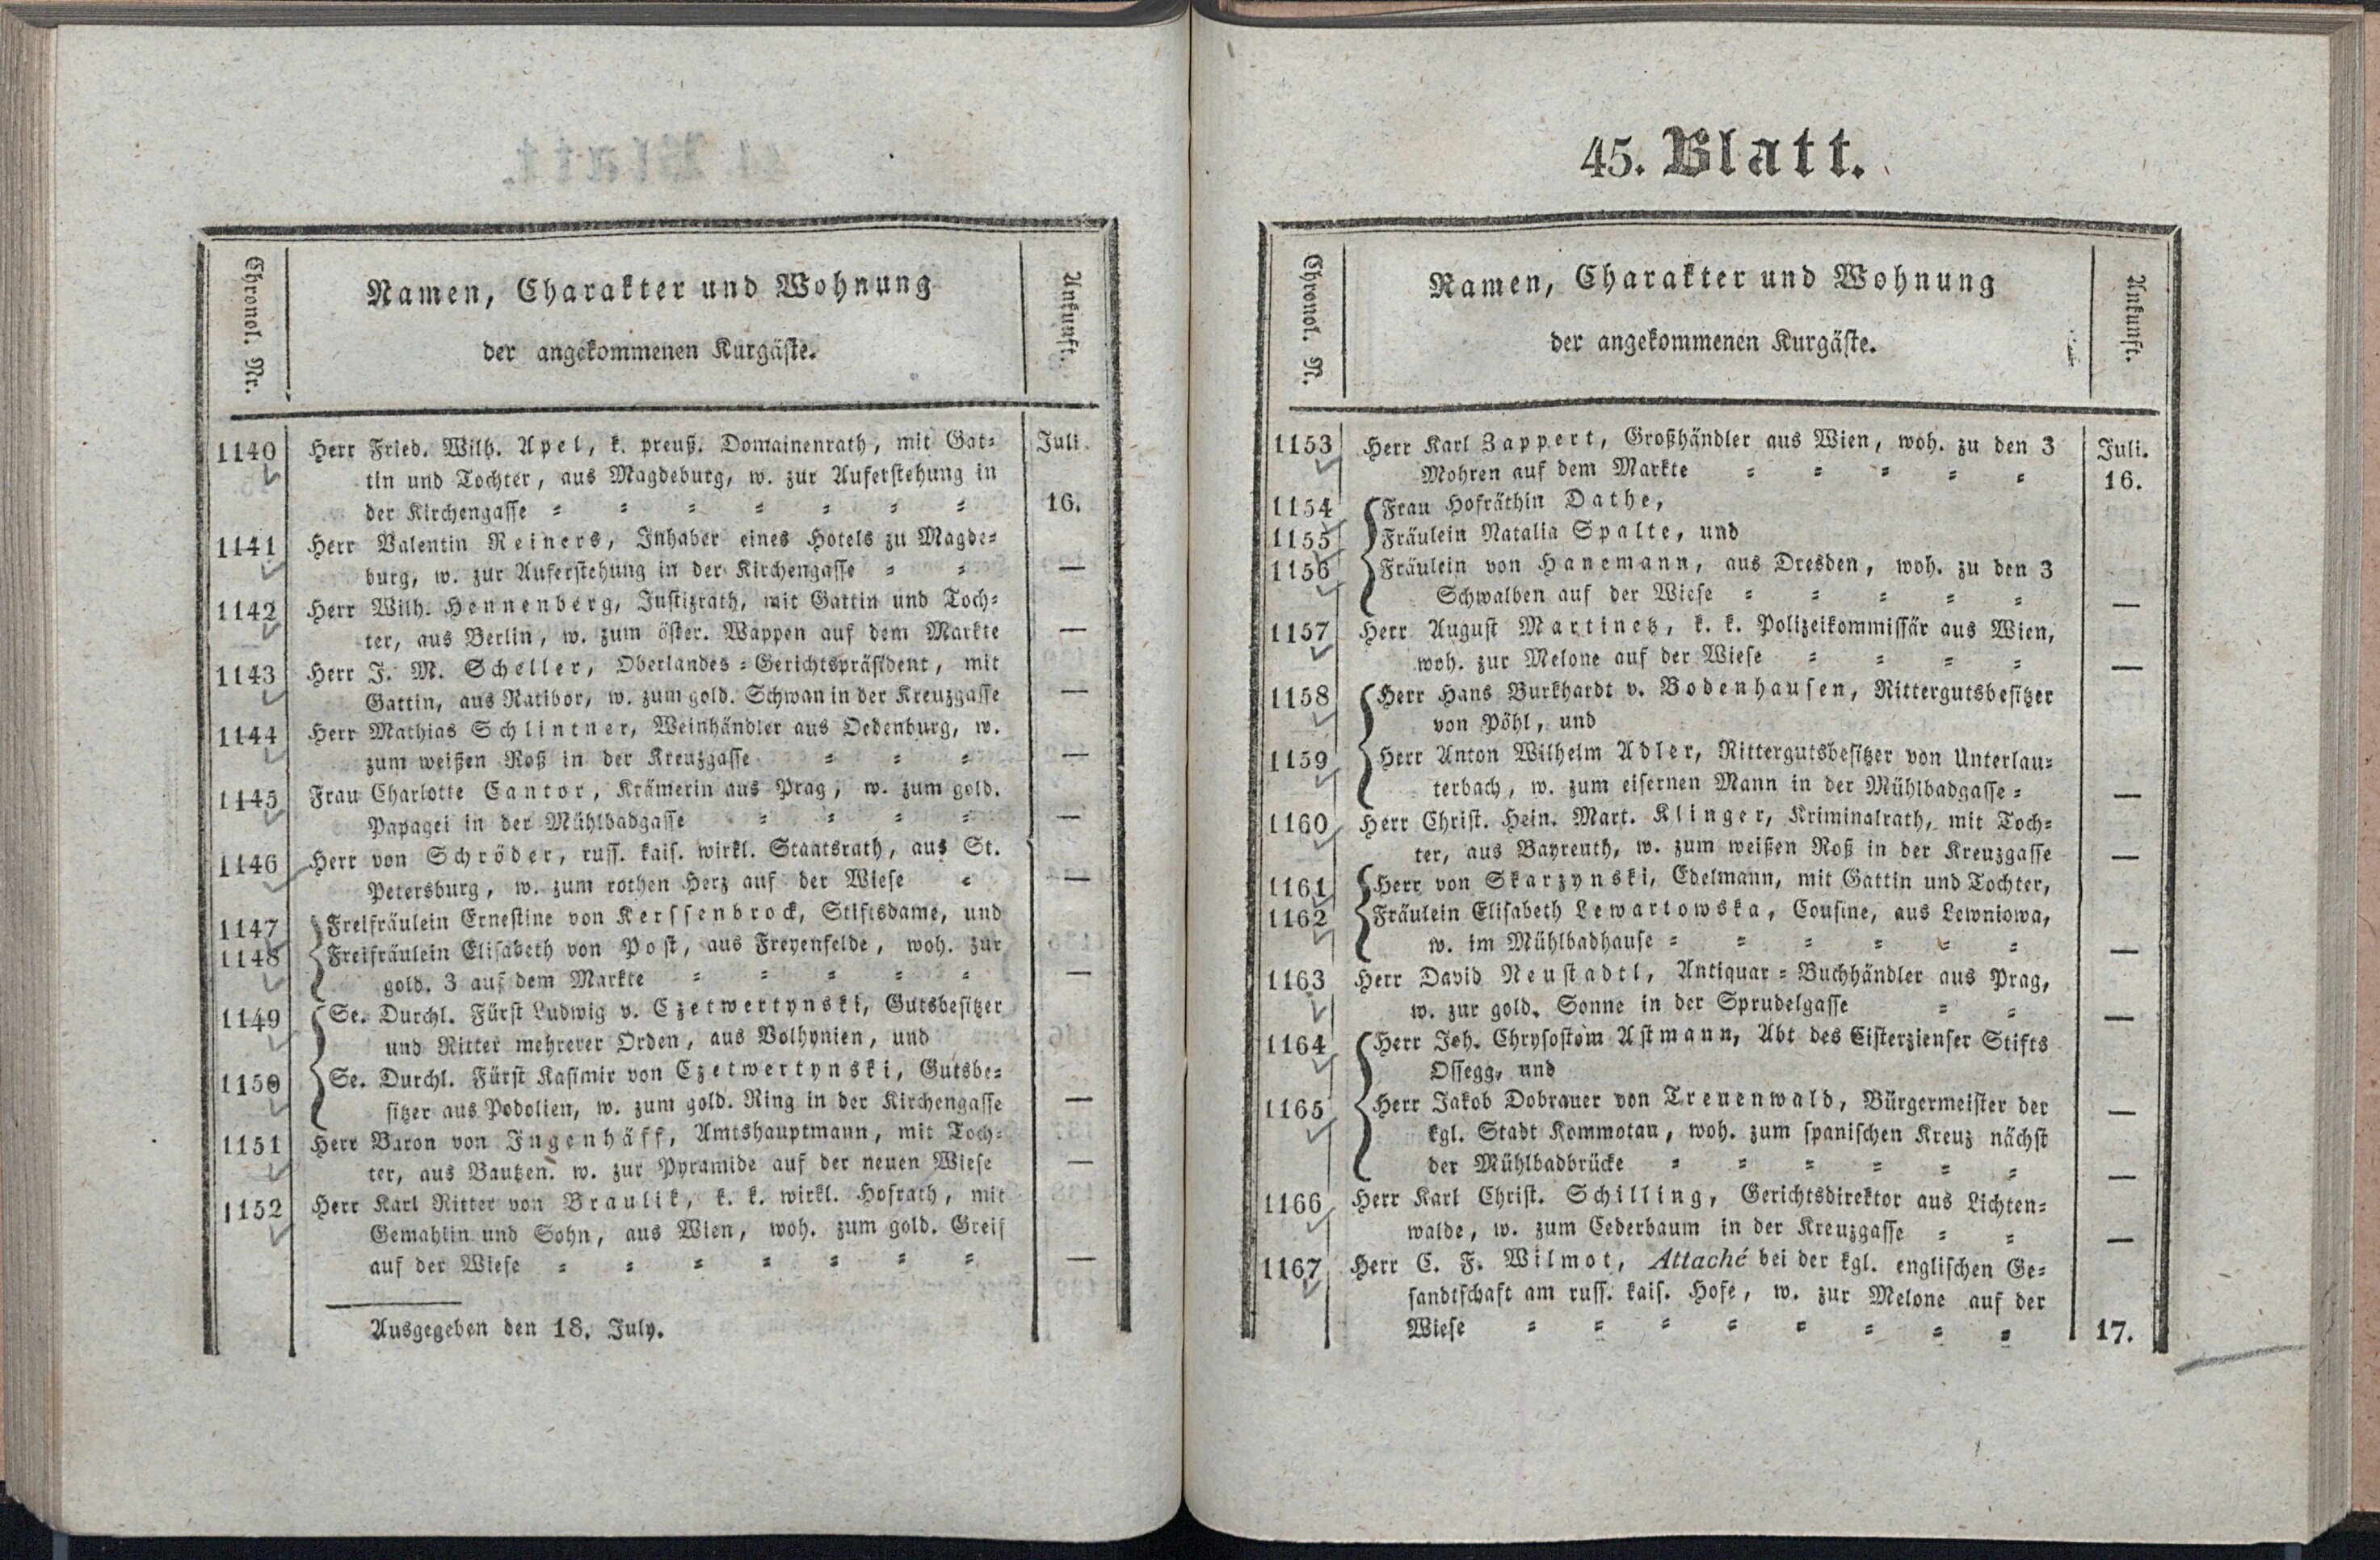 Chronol. Nr.
Namen, Charakter und Wohnung
der angekommenen Kurgäste.
Ankunft.
1140 Herr Fried. Wilh. Apel, k. preuß. Domainenrath, mit Gat= Juli
tin und Tochter, aus Magdeburg, w. zur Auferstehung in
der Kirchengasse = = = = = = = 16.
1141 Herr Valentin Reiners, Inhaber eines Hotels zu Magde=
burg, w. zur Auferstehung in der Kirchengasse = = —
1142 Herr Wilh. Hennenberg, Justizrath, mit Gattin und Toch=
ter, aus Berlin, w. zum öster. Wappen auf dem Markte —
1143 Herr J. M. Scheller, Oberlandes=Gerichtspräsident, mit
Gattin, aus Ratibor, w. zum gold. Schwan in der Kreuzgasse —
1144 Herr Mathias Schlintner, Weinhändler aus Oedenburg, w.
zum weißen Roß in der Kreuzgasse = = = —
1145 Frau Charlotte Cantor, Krämerin aus Prag, w. zum gold.
Papagei in der Mühlbadgasse = = = = —
1146 Herr von Schröder, russ. kais. wirkl. Staatsrath, aus St.
Petersburg, w. zum rothen Herz auf der Wiese = —
1147 Freifräulein Ernestine von Kerssenbrock, Stiftsdame, und
1148 Freifräulein Elisabeth von Post, aus Freyenfelde, woh. zur
gold. 3 auf dem Markte = = = = = —
1149 Se. Durchl. Fürst Ludwig v. Czetwertynski, Gutsbesitzer
und Ritter mehrerer Orden, aus Volhynien, und
1150 Se. Durchl. Fürst Kasimir von Czetwertynski, Gutsbe=
sitzer aus Podolien, w. zum gold. Ring in der Kirchengasse —
1151 Herr Baron von Ingenhäff, Amtshauptmann, mit Toch=
ter, aus Bautzen. w. zur Pyramide auf der neuen Wiese —
1152 Herr Karl Ritter von Braulik, k. k. wirkl. Hofrath, mit
Gemahlin und Sohn, aus Wien, woh. zum gold. Greif
auf der Wiese = = = = = = = —
Ausgegeben den 18. July.
45. Blatt.
Chronol. N.
Namen, Charakter und Wohnung
der angekommenen Kurgäste.
Ankunft.
1153 Herr Karl Zappert, Großhändler aus Wien, woh. zu den 3 Juli.
Mohren auf dem Markte = = = = = 16.
1154 Frau Hofräthin Dathe,
1155 Fräulein Natalia Spalte, und
1156 Fräulein von Hanemann, aus Dresden, woh. zu den 3
Schwalben auf der Wiese = = = = = —
1157 Herr August Martinetz, k. k. Polizeikommissär aus Wien,
woh. zur Melone auf der Wiese = = = = —
1158 Herr Hans Burkhardt v. Bodenhausen, Rittergutsbesitzer
von Pöhl, und
1159 Herr Anton Wilhelm Adler, Rittergutsbesitzer von Unterlau=
terbach, w. zum eisernen Mann in der Mühlbadgasse = —
1160 Herr Christ. Hein. Mart. Klinger, Kriminalrath, mit Toch=
ter, aus Bayreuth, w. zum weißen Roß in der Kreuzgasse —
1161 Herr von Skarzynski, Edelmann, mit Gattin und Tochter,
1162 Fräulein Elisabeth Lewartowska, Cousine, aus Lewniowa,
w. im Mühlbadhause = = = = = = —
1163 Herr David Neustadtl, Antiquar=Buchhändler aus Prag,
w. zur gold. Sonne in der Sprudelgasse = = —
1164 Herr Joh. Chrysostom Astmann, Abt des Cisterzienser Stifts
Ossegg, und
1165 Herr Jakob Dobrauer von Treuenwald, Bürgermeister der —
kgl. Stadt Kommotau, woh. zum spanischen Kreuz nächst
der Mühlbadbrücke = = = = = = —
1166 Herr Karl Christ. Schilling, Gerichtsdirektor aus Lichten=
walde, w. zum Cederbaum in der Kreuzgasse = = —
1167 Herr C. F. Wilmot, Attaché bei der kgl. englischen Ge=
sandtschaft am russ. kais. Hofe, w. zur Melone auf der
Wiese = = = = = = = = 17.